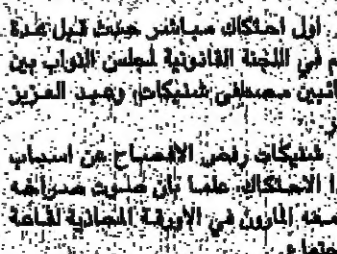 أول احتكاك مباشر حدث قبل عدة
م في اللجنة القانونية لمجلس النواب بين
ائبين مصطفى شنيكات وعبد العزيز
ر.
شنيكات رفض الافصاح عن اسباب
ا الاحتكاك علما بان صوت صراخه
سمعه المارون في الأروقة المحاذية لقاعة